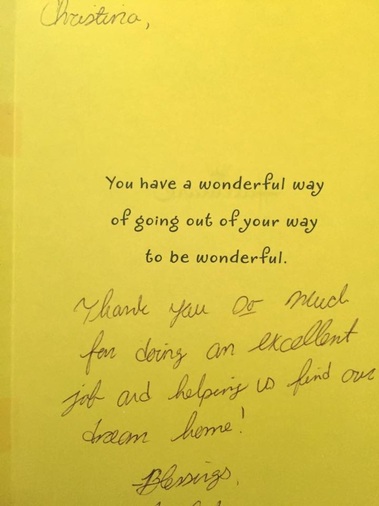 Christina,
You have a wonderful way
of going out of your way
to be wonderful.
Thank you so much
for doing an excellent
job and helping us find our
dream home!
Blessings,